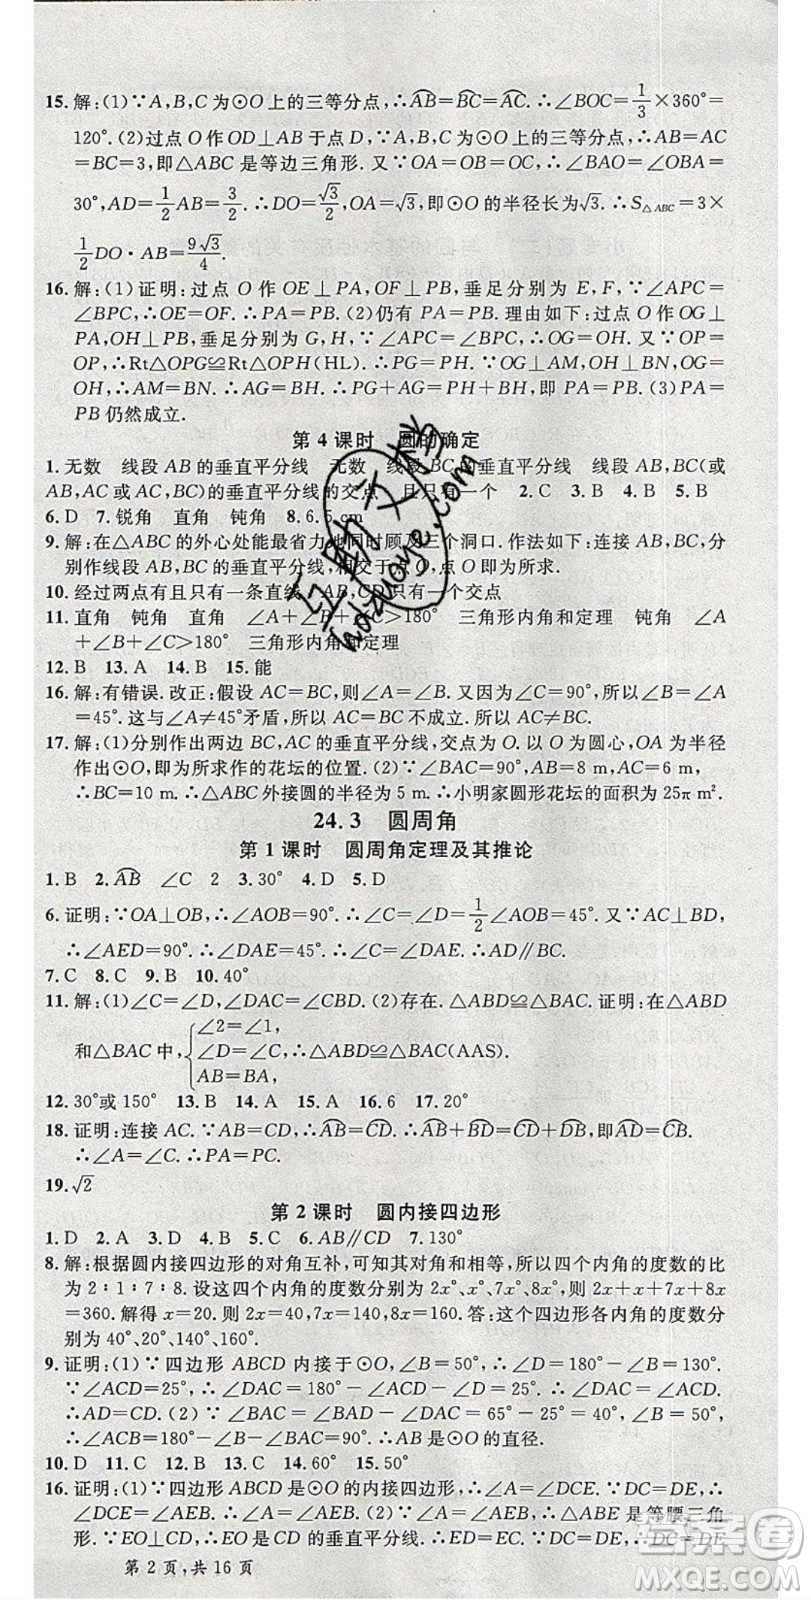 15. 解:(1)∵A,B,C为⊙O上的三等分点,∴AB=BC=AC.∴∠BOC=1/3×360°=
120°.(2)过点O作OD⊥AB于点D,∵A,B,C为⊙O上的三等分点,∴AB=AC
=BC=3,即△ABC是等边三角形.又∵OA=OB=OC,∴∠BAO=∠OBA=
30°,AD=1/2AB=3/2.∴DO=√3/2,∴OA=√3,即⊙O的半径长为√3.∴S△ABC=3×
1/2DO·AB=9√3/4.
16. 解:(1)证明:过点O作OE⊥PA,OF⊥PB,垂足分别为E,F,∵∠APC=
∠BPC,∴OE=OF.∴PA=PB.(2)仍有PA=PB.理由如下:过点O作OG⊥
PA,OH⊥PB,垂足分别为G,H,∵∠APC=∠BPC,∴OG=OH.又∵OP=
OP,∴Rt△OPG≌Rt△OPH(HL).∴PG=PH.∵OG⊥AM,OH⊥BN,OG=
OH,∴AM=BN.∴AG=BH.∴PG+AG=PH+BH,即PA=PB.(3)PA=
PB仍然成立.
第4课时 圆的确定
1. 无数 线段AB的垂直平分线 无数 线段AB的垂直平分线 线段AB,BC(或
AB,AC或AC,BC)的垂直平分线的交点 且只有一个 2. C 3. B 4. B 5. B
6. D 7. 锐角 直角 钝角 8. 6.5 cm
9. 解:在△ABC的外心处能最省力地同时顾及三个洞口.作法如下:连接AB,BC,分
别作线段AB,BC的垂直平分线,相交于点O,点O即为所求.
10. 经过两点有且只有一条直线 AB,CD只有一个交点
11. 直角 钝角 直角 ∠A+∠B+∠C>180° 三角形内角和定理 钝角 ∠A
+∠B+∠C>180° 三角形内角和定理
12. B 13. A 14. B 15. 能
16. 解:有错误.改正:假设AC=BC,则∠A=∠B.又因为∠C=90°,所以∠B=∠A
=45°.这与∠A≠45°矛盾,所以AC=BC不成立.所以AC≠BC.
17. 解:(1)分别作出两边BC,AC的垂直平分线,交点为O.以O为圆心,OA为半径
作出⊙O,即为所求作的花坛的位置.(2)∵∠BAC=90°,AB=8 m,AC=6 m,
∴BC=10 m.∴△ABC外接圆的半径为5 m.∴小明家圆形花坛的面积为25π m².
24.3 圆周角
第1课时 圆周角定理及其推论
1. B 2. AB ∠C 2 3. 30° 4. D 5. D
6. 证明:∵OA⊥OB,∴∠AOB=90°.∴∠C=∠D=1/2∠AOB=45°.又∵AC⊥BD,
∴∠AED=90°.∴∠DAE=45°.∴∠C=∠DAE.∴AD∥BC.
7. C 8. C 9. B 10. 40°
11. 解:(1)∠C=∠D,∠DAC=∠CBD.(2)存在.△ABD≌△BAC.证明:在△ABD
和△BAC中,{∠2=∠1,
∠D=∠C,∴△ABD≌△BAC(AAS).
AB=BA,
12. 30°或150° 13. B 14. A 15. A 16. 6 17. 20°
18. 证明:连接AC.∵AB=CD,∴AB=CD.∴AB+BD=CD+DB,即AD=CB.
∴∠A=∠C.∴PA=PC.
19. √2
第2课时 圆内接四边形
1. D 2. A 3. D 4. D 5. C 6. AB∥CD 7. 130°
8. 解:根据圆内接四边形的对角互补,可得对角和相等,所以四个内角的度数的比
为2∶1∶7∶8.设这四个内角的度数分别为2x°、x°、7x°、8x°,则2x+x+7x+8x
=360.解得x=20.则2x=40,7x=140,8x=160.答:这个四边形各内角的度数分
别为40°、20°、140°、160°.
9. 证明:(1)∵四边形ABCD内接于⊙O,∠B=50°,∴∠D=180°-∠B=130°.
∵∠ACD=25°,∴∠DAC=180°-∠ACD-∠D=25°.∴∠DAC=∠ACD.
∴AD=CD.(2)∵∠BAC=∠BAD-∠DAC=65°-25°=40°,∠B=50°,
∴∠ACB=180°-∠B-∠BAC=90°.∴AB是⊙O的直径.
10. D 11. C 12. D 13. A 14. 60° 15. 60°
16. 证明:(1)∵四边形ABCD是⊙O的内接四边形,∴∠A=∠DCE.∵DC=DE,∴
∠DCE=∠AEB.∴∠A=∠AEB.(2)∵∠A=∠AEB,∴△ABE是等腰三角
形.∵EO⊥CD,∴EO是CD的垂直平分线.∴DE=EC.∵DC=DE,∴DC=DE
第2页,共16页
互助文档
hdzuoye.com
答案圈
MXQE.COM